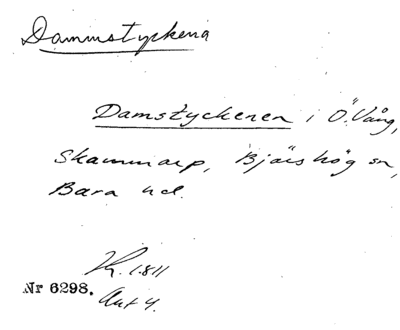 Dammstyckena
Damstyckenen i Ö. Vång,
Skammarp, Bjärshög sn,
Bara hd.
K. 1811
Nr 6298. Akt 4.